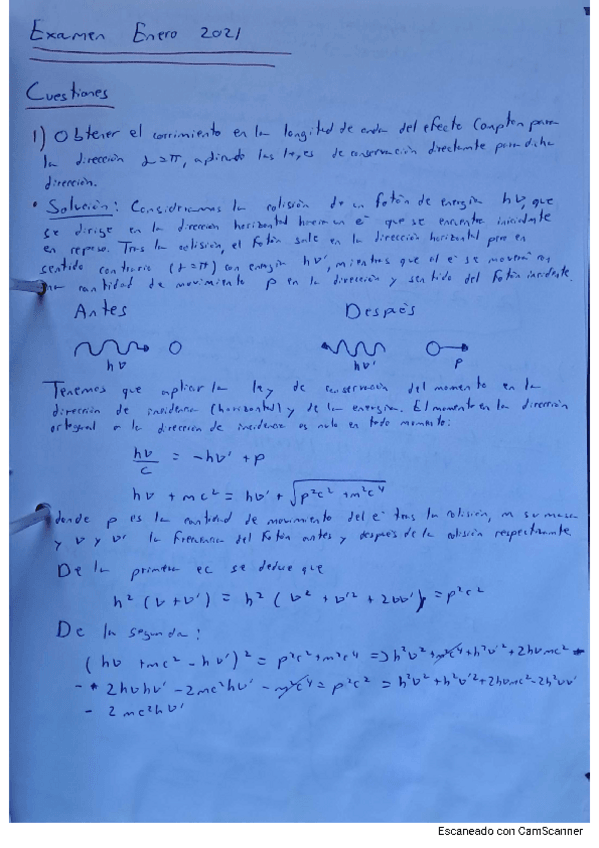 Examen Enero 2021
Cuestiones
1) Obtener el corrimiento en la longitud de onda del efecto Compton para
la dirección α=π, aplicando las leyes de conservación directamente para dicha
dirección.
• Solución: Consideramos la colisión de un fotón de energía hν, que
se dirige en la dirección horizontal hacia un e⁻ que se encuentra inicialmente
en reposo. Tras la colisión, el fotón sale en la dirección horizontal pero en
sentido contrario (α=π) con energía hν', mientras que el e⁻ se moverá con
una cantidad de movimiento p en la dirección y sentido del fotón incidente.
Antes Después
hν hν' p
Tenemos que aplicar la ley de conservación del momento en la
dirección de incidencia (horizontal) y de la energía. El momento en la dirección
ortogonal a la dirección de incidencia es nulo en todo momento:
hν/c = -hν' + p
hν + mc² = hν' + √(p²c² + m²c⁴)
donde p es la cantidad de movimiento del e⁻ tras la colisión, m su masa
y ν y ν' la frecuencia del fotón antes y después de la colisión respectivamente.
De la primera ec se deduce que
h² (ν + ν') = h² (ν² + ν'² + 2νν') = p²c²
De la segunda:
(hν + mc² - hν')² = p²c² + m²c⁴ => h²ν² + m²c⁴ + h²ν'² + 2hνmc² -
- 2hνhν' - 2mc²hν' - m²c⁴ = p²c² = h²ν² + h²ν'² + 2hνmc² - 2h²νν'
- 2mc²hν'
Escaneado con CamScanner